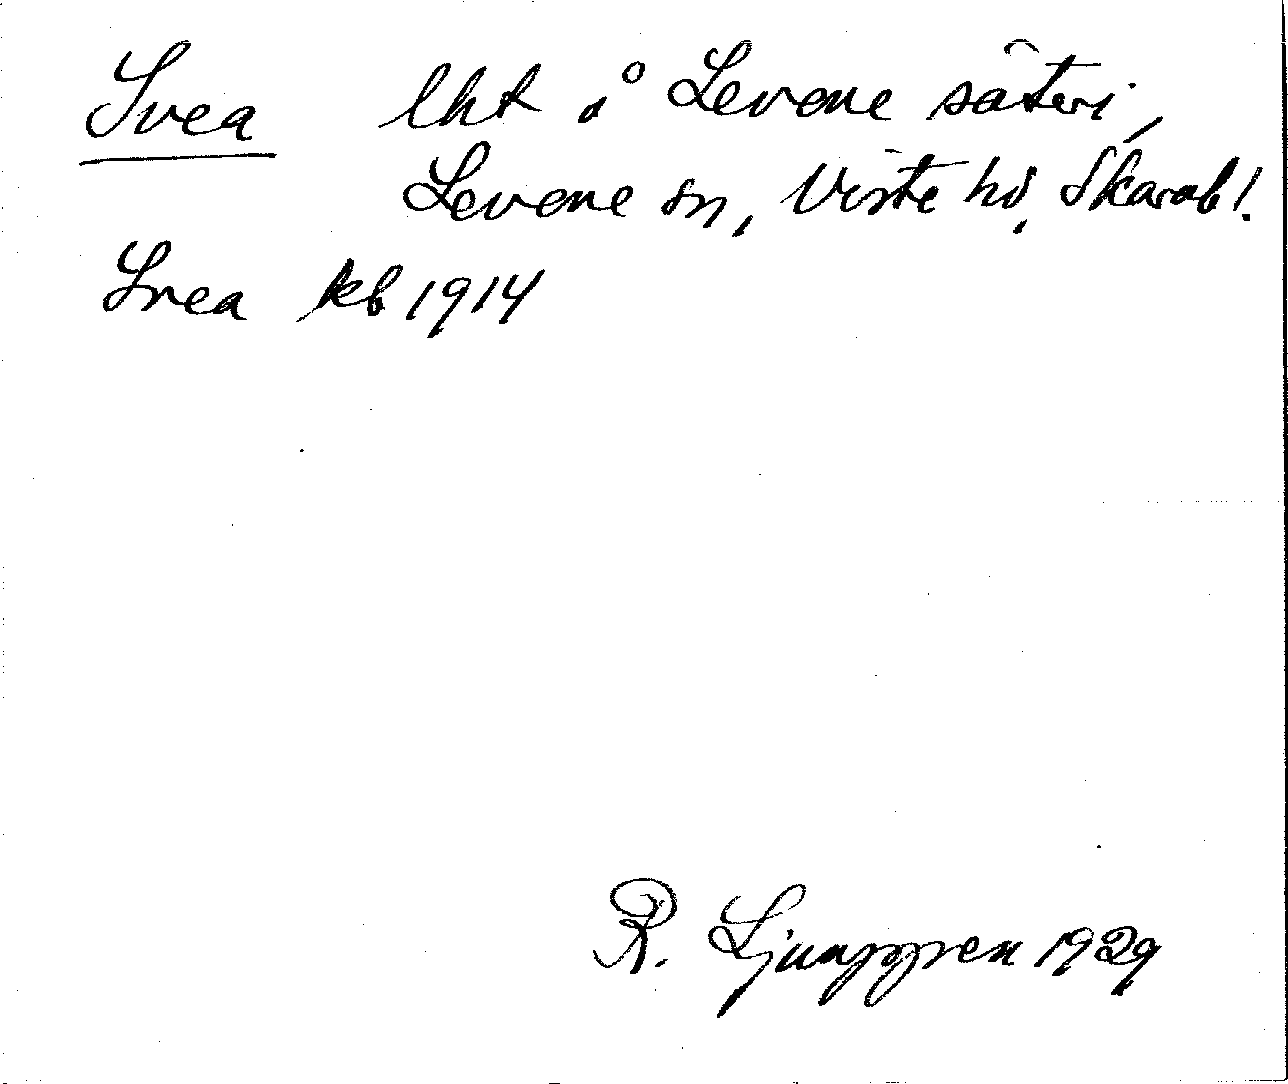 Svea lht å Levene säteri,
Levene sn, Viste hd, Skarab l.
Svea kb 1914
R. Ljunggren 1929